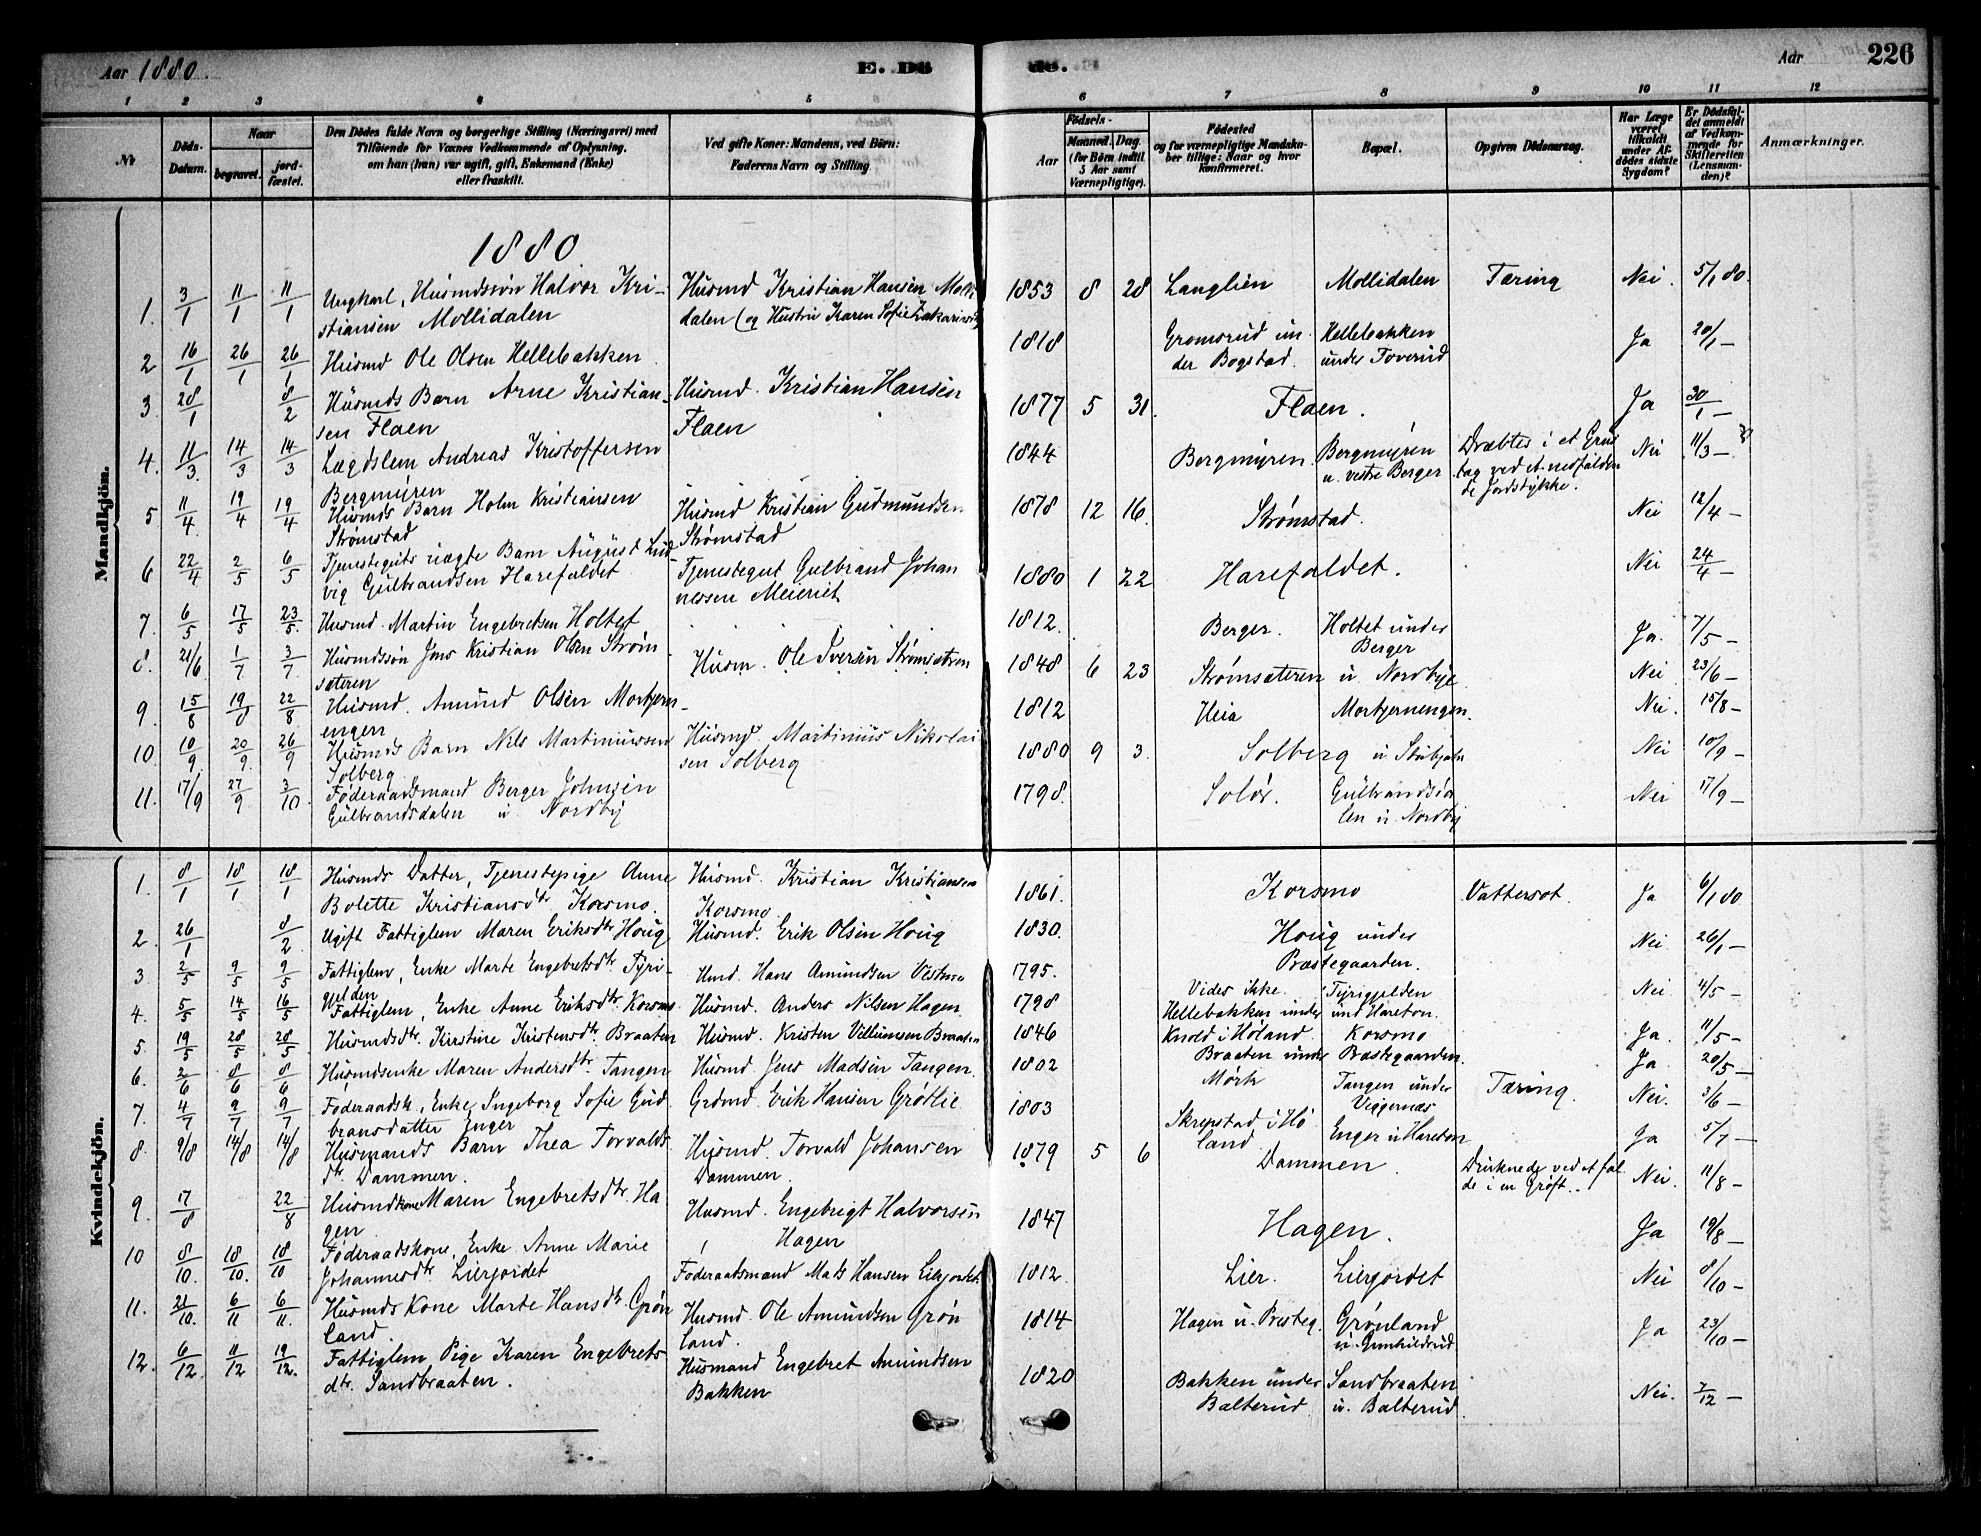 Aar 1880.
E. Dö
de.
Aar
226
1 2 3 4 5 6 7 8 9 10 11 12
No
Döds-Datum.
Naar
begravet.
jordfæstet.
Den Dödes fulde Navn og borgerlige Stilling (Næringsvei) med
Tilföiende for Voxnes Vedkommende af Oplysning,
om han (hun) var ugift, gift, Enkemand (Enke)
eller fraskilt.
Ved gifte Koner: Mandens, ved Börn:
Faderens Navn og Stilling
Födsels-
Aar
Maaned. Dag.
(for Börn indtil
5 Aar samt
Værnepligtige).
Födested
og for værnepligtige Mandska-
ber tillige: Naar og hvor
konfirmeret.
Bopæl.
Opgiven Dödsaarsag.
Har Læge
været
tilkaldt
under Af-
dödes sidste
Sygdom?
Er Dödsfal-
det anmeldt
af Vedkom-
mende for
Skifteretten
(Lensman-
den)?
Anmærkninger.
Mandkjön.
1880
1. 3/1 11/1 11/1 Ungkarl, Husmdssøn Halvor Kri- Husmd Kristian Hansen Molli 1853 8 28 Langlien Mollidalen Tæring Nei. 5/1 80.
stiansen Mollidalen dalen (og Hustru Karen Sofie Zakariasd
2 16/1 26/1 26/1 Husmd Ole Olsen Hellebakken 1818 Gromsrud un Hellebakken Ja 20/1 —
der Bogstad. under Toverud
3. 28/1 8/2 Husmds Barn Arne Kristian- Husmd. Kristian Hansen 1877 5 31. Flaen. Ja 30/1 —
sen Flaen Flaen
4. 11/3 14/3 14/3 Lægdslem Andreas Kristoffersen 1844 Bergmyren Bergmyren Dræbtes i et Grus Nei 11/3 —
Bergmyren u. vestre Berger tag ved et nedfalden
de Jordstykke.
5 11/4 19/4 19/4 Husmds Barn Holm Kristiansen Husmd Kristian Gudmundsen 1878 12 16. Strømstad. Nei 12/4 —
Strømstad Strømstad
6 22/4 2/5 6/5 Tjenesteguts uægte Barn August Lud Tjenestegut Gulbrand Johan 1880 1 22 Harefaldet. Nei 24/4 —
vig Gulbrandsen Harefaldet nessen Meieriet
7. 6/5 17/5 23/5. Husmd. Martin Engebretsen Holtet 1812. Berger. Holtet under Ja. 7/5 —
Berger
8. 21/6 1/7 3/7 Husmdssøn Jens Kristian Olsen Strøm Husm. Ole Iversen Strømsæteren 1848 6 23 Strømsæteren u. Nordbye. Nei. 23/6 —
sæteren
9. 15/8 19/8 22/8 Husmd. Amund Olsen Mortjern- 1812 Heia Mortjernengen. Nei. 15/8 —
engen
10. 10/9 20/9. 26/9 Husmds Barn Nils Martiniussen Husmd. Martinius Nikolai 1880 9 3. Solberg u Nei 10/9 —
Solberg sen Solberg
11. 17/9 27/9 3/10. Føderaadsmand Berger Johnsen 1798. Solør. Gulbrandsda Nei 17/9 —
Gulbrandsdalen u Nordby len u. Nordby
Kvindekjön.
1. 8/1 18/1 18/1 Husmds Datter, Tjenestepige Anne Husmd. Kristian Kristiansen 1861. Korsmo Vattersot. Ja 6/1 80
Bolette Kristiansdtr Korsmo. Korsmo
2. 26/1 8/2 Ugift Fattiglem Maren Eriksdtr Houg Husmd. Erik Olsen Houg 1830. Houg under Nei. 26/1 —
Præstegaarden.
3 2/5 9/5 9/5 Fattiglem, Enke Marte Engebretsdtr Tyri- Hmd. Hans Amundsen 1795. Vides ikke Tyrigjelden Nei. 4/5 —
gjelden
4. 5/5 14/5 16/5 Fattiglem, Enke Anne Eriksdtr Korsmo Husmd. Anders Nilsen Hagen. 1798 Hellebakken under und Hareton.
5. 19/5 28/5 28/5 Husmdsdtr. Kirstine Kristensdtr Braaten Husmd. Kristen Villumsen Braaten 1846 Knold i Høland Korsmo Ja. 11/5 —
Braaten under Præstegaarden. Ja 20/5 —
6. 2/6 8/6 8/6 Husmdsenke Maren Andersdtr Tangen Husmd Jens Madsen Tangen. 1802 Mørk Tangen under Tæring. Nei. 3/6 —
Viggernæs
7. 4/7 9/7 9/7 Føderaadsk, Enke Ingeborg Sofie Gud Grdmd. Erik Hansen Grøtlie 1803 Skrepstad i Hø Enger u Hareton Ja 5/7 —
bransdatter Enger land
8. 9/8 14/8 14/8 Husmands Barn Thea Torvalds Husmd. Torvald Johansen 1879 5 6 Dammen. Druknede ved et fal Nei. 11/8 —
dtr. Dammen. Dammen. de i en Grøft.
9. 17/8 22/8 Husmdkone Maren Engebretsdtr. Ha Husmd. Engebrigt Halvorsen 1847 Hagen. Ja 19/8 —
gen Hagen
10 8/10. 18/10. 18/10 Føderaadskone, Enke Anne Marie Føderaadsmand Mats Hansen Lierjordet 1812. Lier. Lierjordet Nei 8/10 —
Johannesdtr Lierjordet
11. 21/10. 6/11 6/11. Husmds Kone Marte Hansdtr. Grøn Husmd. Ole Amundsen Grøn 1814 Hagen u. Presteg. Grønland Ja 23/10 —
land land. u. Gunhildrud
12. 6/12. 11/12 19/12. Fattiglem Pige Karen Engebrets Husmand Engebret Amundsen 1820 Bakken under Sandbraaten Nei. 7/12 —
dtr. Sandbraaten. Bakken Balterud u. Balterud.